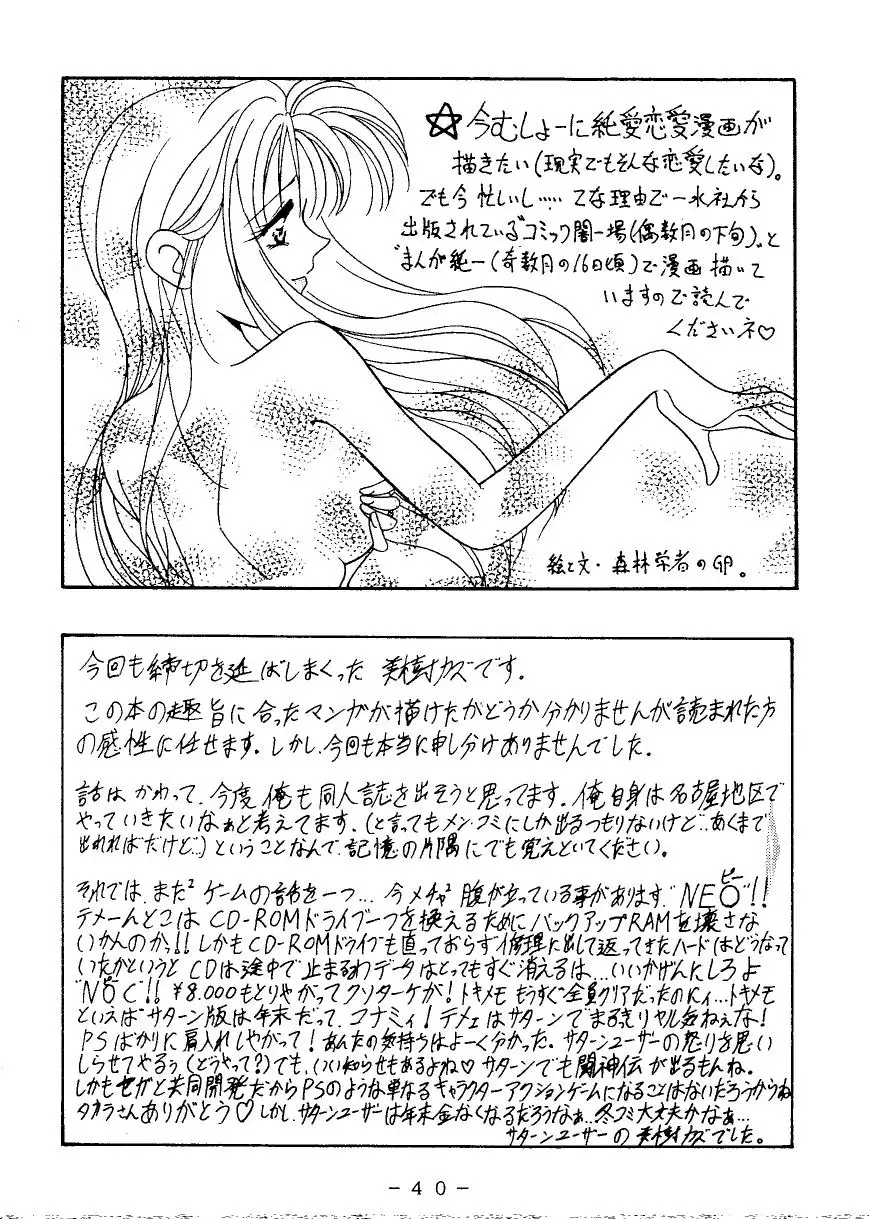 ☆今むしょーに純愛恋愛漫画が
描きたい(現実でもそんな恋愛したいな)。
でも今忙しいし……てな理由で一水社から
出版されている"コミック闇一場(偶数月の下旬)。と
"まんが純一(奇数月の16日頃)で漫画描いて
いますので読んで
くださいネ♡
絵と文・森林学者のGP。
今回も締切を延ばしまくった 美樹カズです。
この本の趣旨に合ったマンガが描けたかどうか分かりませんが読まれた方
の感性に任せます。しかし、今回も本当に申し分けありませんでした。
話はかわって、今度俺も同人誌を出そうと思ってます。俺自身は名古屋地区で
やっていきたいなぁと考えてます、(と言ってもメン・コミにしか出るつもりないけど…あくまで
出れればだけど…)ということなんで、記憶の片隅にでも覚えといてください。
それでは、また²ゲームの話を一つ…今メチャ²腹が立っている事があります"NEO"!!
ピー
テメーんとこはCD-ROMドライブ一つを換えるためにバックアップRAMを壊さな
いかんのかっ!!しかもCD-ROMドライブも直っておらず修理に出して返ってきたハードはどうなって
いたかというとCDは途中で止まるわデータはとってもすぐ消えるは…いいかげんにしろよ
ピー
"NOC"!!¥8.000もとりやがってクソターケが!トキメモもうすぐ全員クリアだったのにィ…トキメモ
といえばサターン版は年末だって、コナミィ!テメェはサターンでまるきりヤル気ねぇな!
PSばかりに肩入れしやがって!あんたの気持ちはよーく分かった。サターンユーザーの怒りを思い
しらせてやるぅ(どうやって?)でも、いい知らせもあるよね♡サターンでも闘神伝が出るもんね。
しかもセガと共同開発だからPSのような単なるキャラクターアクションゲームになることはないだろうからね
タカラさんありがとう♡しかし、サターンユーザーは年末金なくなるだろうなぁ…冬コミ大丈夫かなぁ…
サターンユーザーの美樹カズでした。
- 40 -